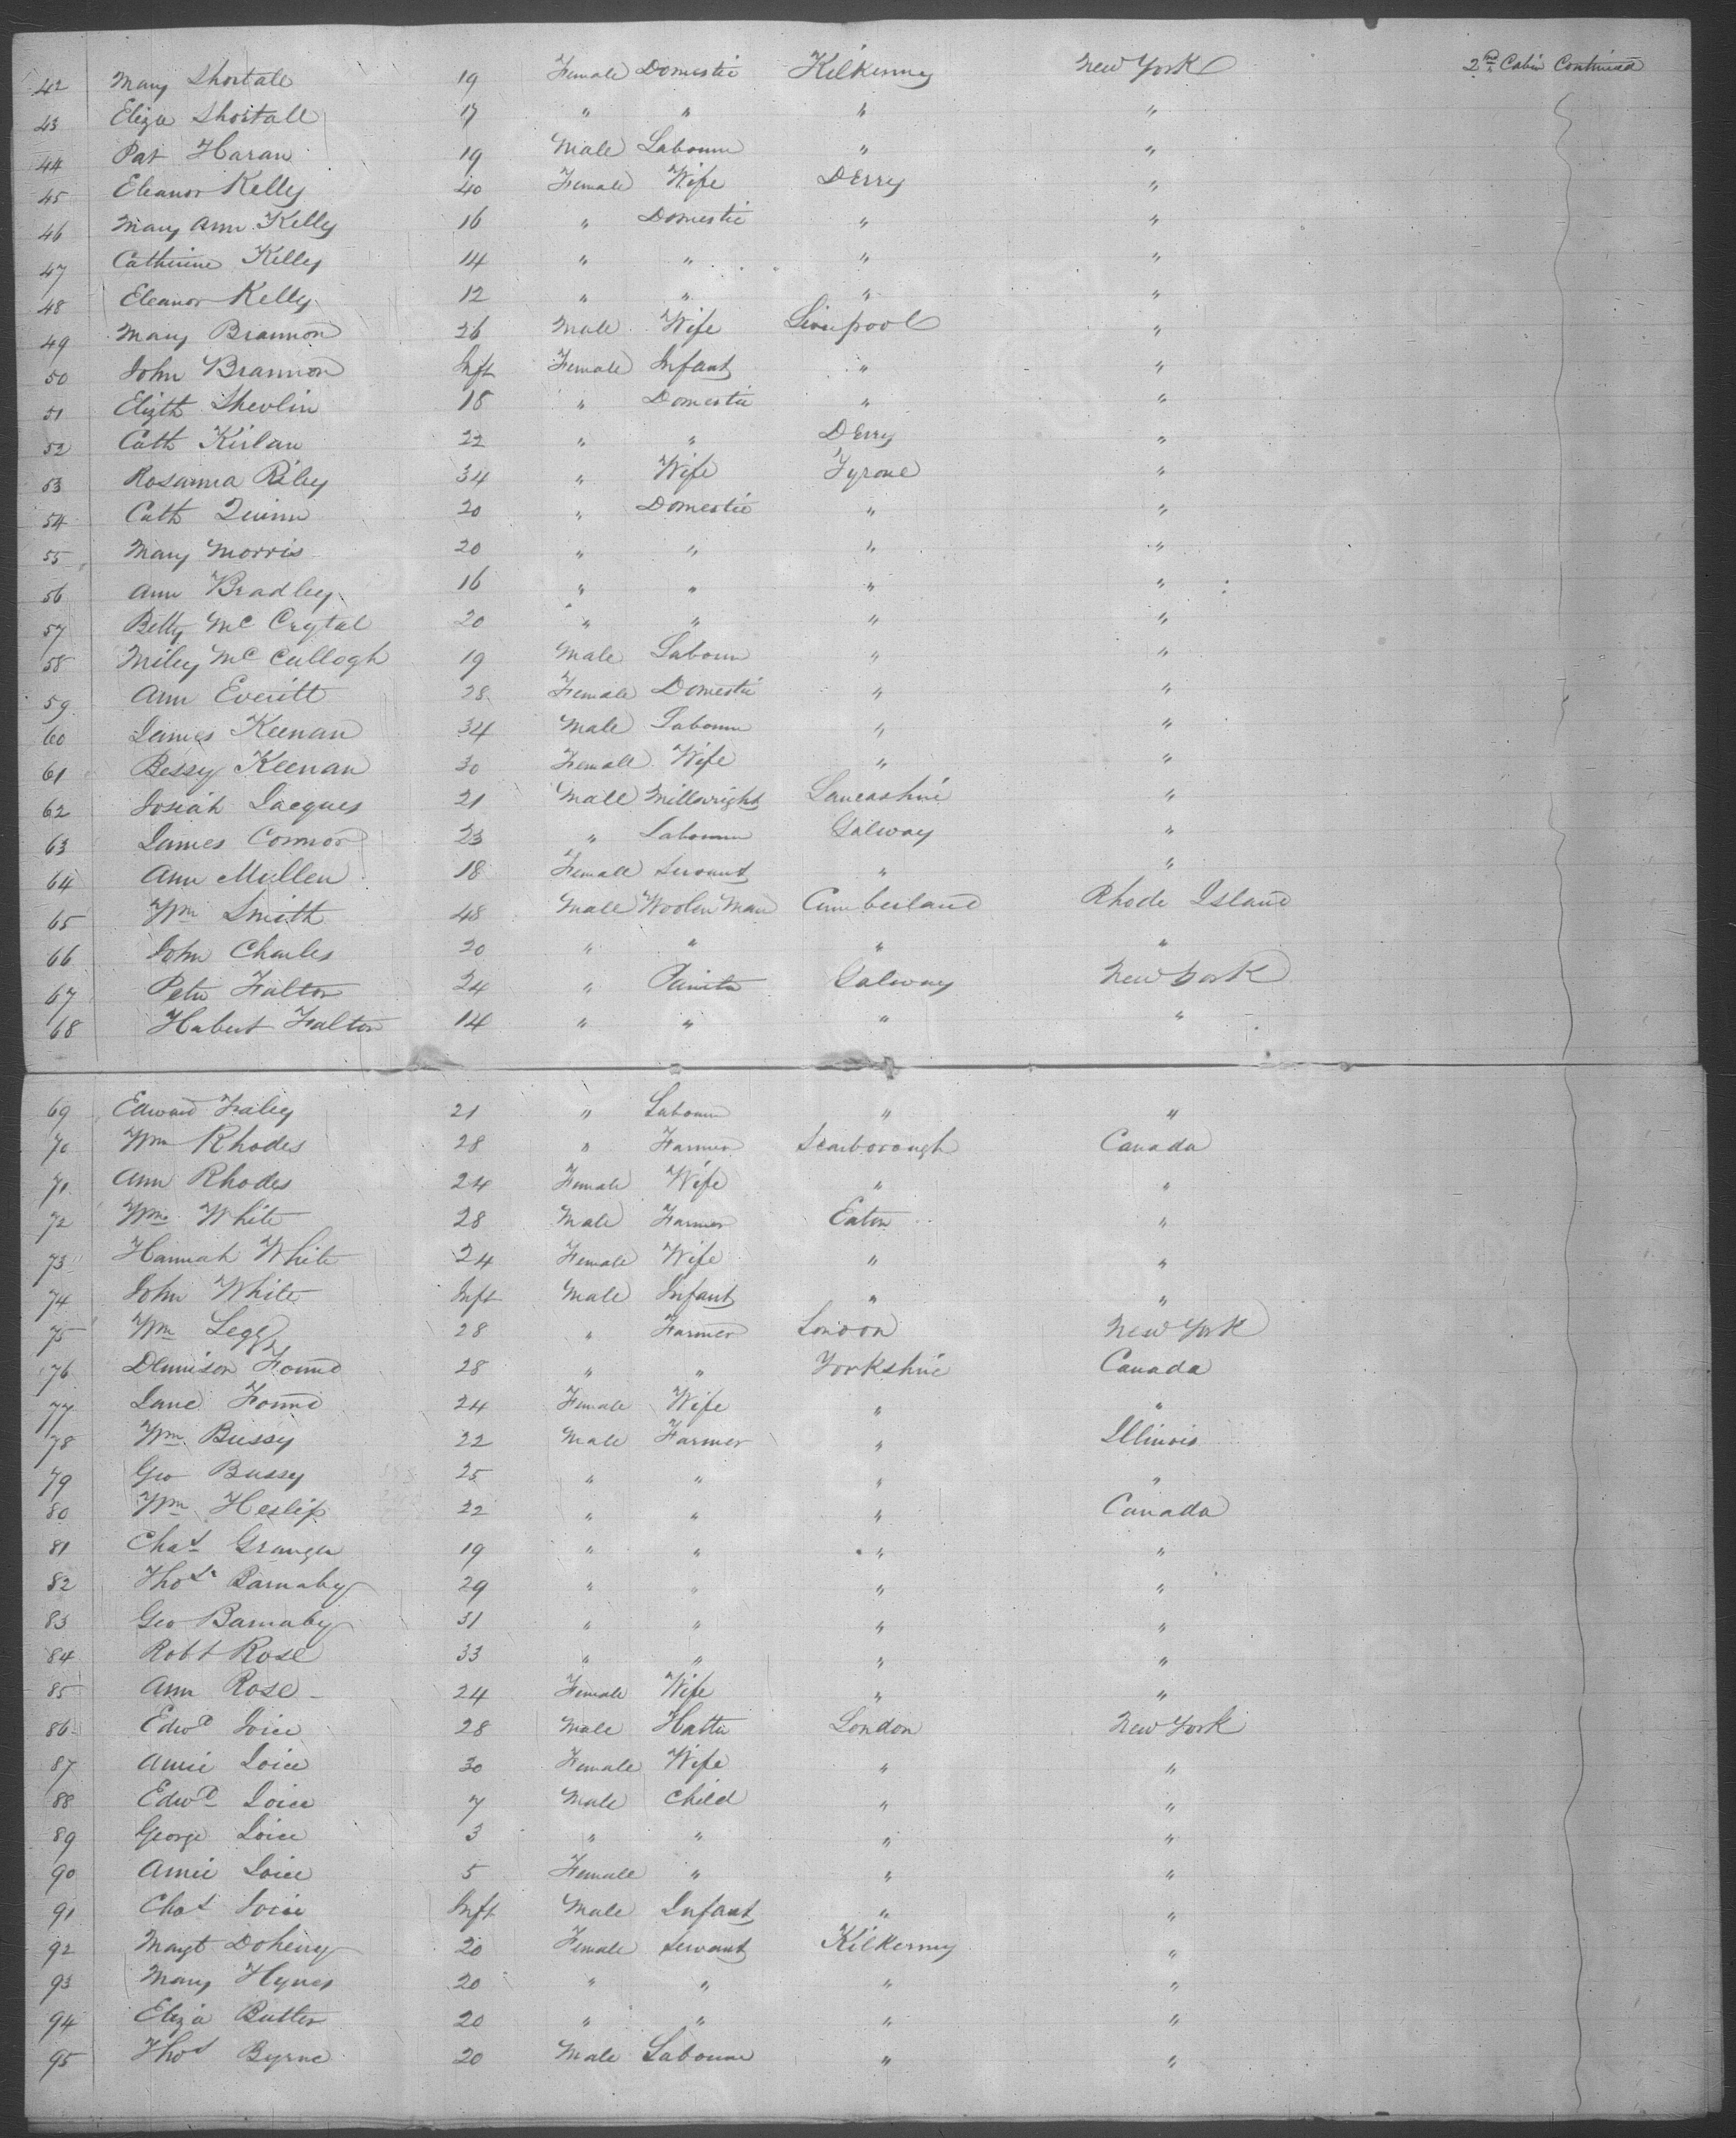 42 Mary Shortall 19 Female Domestic Kilkenny New York 2nd Cabin Continued
43 Eliza Shortall 17 " " " "
44 Pat Haran 19 Male Labourer " "
45 Eleanor Kelly 40 Female Wife Derry "
46 Mary Ann Kelly 16 " Domestic " "
47 Catherine Kelly 14 " " " "
48 Eleanor Kelly 12 " " " "
49 Mary Brannon 26 Male Wife Liverpool "
50 John Brannon Inft Female Infant " "
51 Elizth Shevlin 18 " Domestic " "
52 Cath Kirlan 22 " " Derry "
53 Rosanna Riley 34 " Wife Tyrone "
54 Cath Quinn 20 " Domestic " "
55 Mary Morris 20 " " " "
56 Ann Bradley 16 " " " "
57 Betty Mc Crytal 20 " " " "
58 Miley Mc Cullogh 19 Male Labourer " "
59 Ann Everitt 28 Female Domestic " "
60 James Keenan 34 Male Labourer " "
61 Bessy Keenan 30 Female Wife " "
62 Josiah Jacques 21 Male Millwright Lancashire "
63 James Connor 23 " Labourer Galway "
64 Ann Mullen 18 Female Servant " "
65 Wm Smith 48 Male Woolen Man Cumberland Rhode Island
66 John Charles 20 " " " "
67 Peter Falton 24 " Painter Galway New York
68 Hubert Falton 14 " " " "
69 Edward Faley 21 " Labourer " "
70 Wm Rhodes 28 " Farmer Scarborough Canada
71 Ann Rhodes 24 Female Wife " "
72 Wm White 28 Male Farmer Eaton "
73 Hannah White 24 Female Wife " "
74 John White Inft Male Infant " "
75 Wm Legg 28 " Farmer London New York
76 Dennison Found 28 " " Yorkshire Canada
77 Jane Found 24 Female Wife " "
78 Wm Bussy 22 Male Farmer " Illinois
79 Geo Bussy 25 " " " "
80 Wm Heslip 22 " " " Canada
81 Chas Granger 19 " " " "
82 Thos Barnaby 29 " " " "
83 Geo Barnaby 31 " " " "
84 Robt Rose 33 " " " "
85 Ann Rose 24 Female Wife " "
86 Edwd Joice 28 Male Hatter London New York
87 Amie Joice 30 Female Wife " "
88 Edwd Joice 7 Male Child " "
89 George Joice 3 " " " "
90 Amie Joice 5 Female " " "
91 Chas Joice Inft Male Infant " "
92 Margt Doheny 20 Female Servant Kilkenny "
93 Mary Hynes 20 " " " "
94 Eliza Butler 20 " " " "
95 Thos Byrne 20 Male Labourer " "